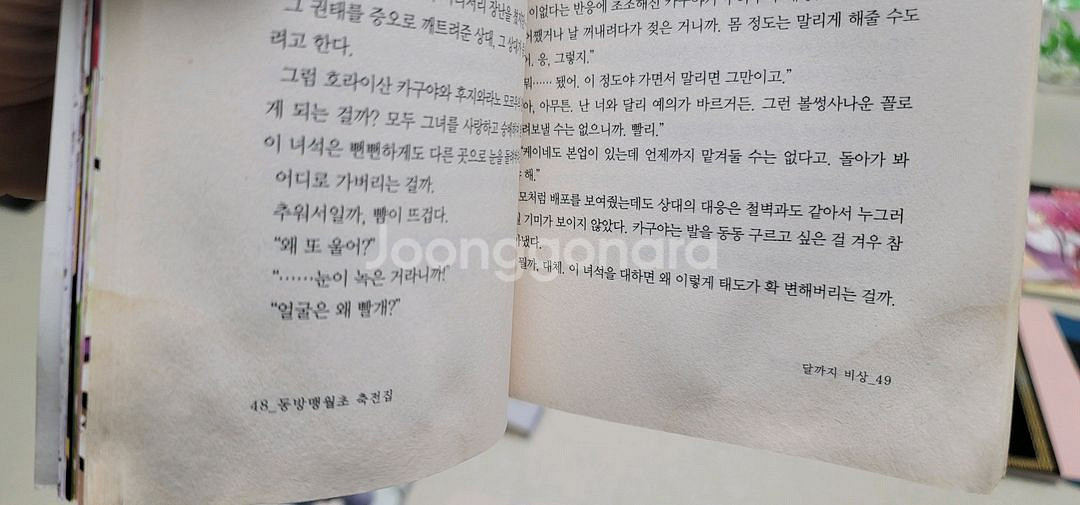 그 권태를 증오로 깨트려준 상대, 그
려고 한다.
그럼 호라이산 카구야와 후지와라노
게 되는 걸까? 모두 그녀를 사랑하고
이 녀석은 뻔뻔하게도 다른 곳으로 눈을
어디로 가버리는 걸까.
추워서일까, 뺨이 뜨겁다.
“왜 또 울어?”
“……눈이 녹은 거라니까!
“얼굴은 왜 빨개?”
48_동방맹월초 축전집
이없다는 반응에 초조해진 카구야가
어쨌거나 날 꺼내려다가 젖은 거니까. 몸 정도는 말리게 해줄 수도
어. 응, 그렇지.”
됐어. 이 정도야 가면서 말리면 그만이고.”
아, 아무튼. 난 너와 달리 예의가 바르거든. 그런 볼썽사나운 꼴로
려보낼 수는 없으니까. 빨리.”
“케이네도 본업이 있는데 언제까지 맡겨둘 수는 없다고. 돌아가 봐
해.”
모처럼 배포를 보여줬는데도 상대의 대응은 철벽과도 같아서 누그러
기미가 보이지 않았다. 카구야는 발을 동동 구르고 싶은 걸 겨우 참
냈다.
뭘까, 대체. 이 녀석을 대하면 왜 이렇게 태도가 확 변해버리는 걸까.
달까지 비상_49
Joonggonara